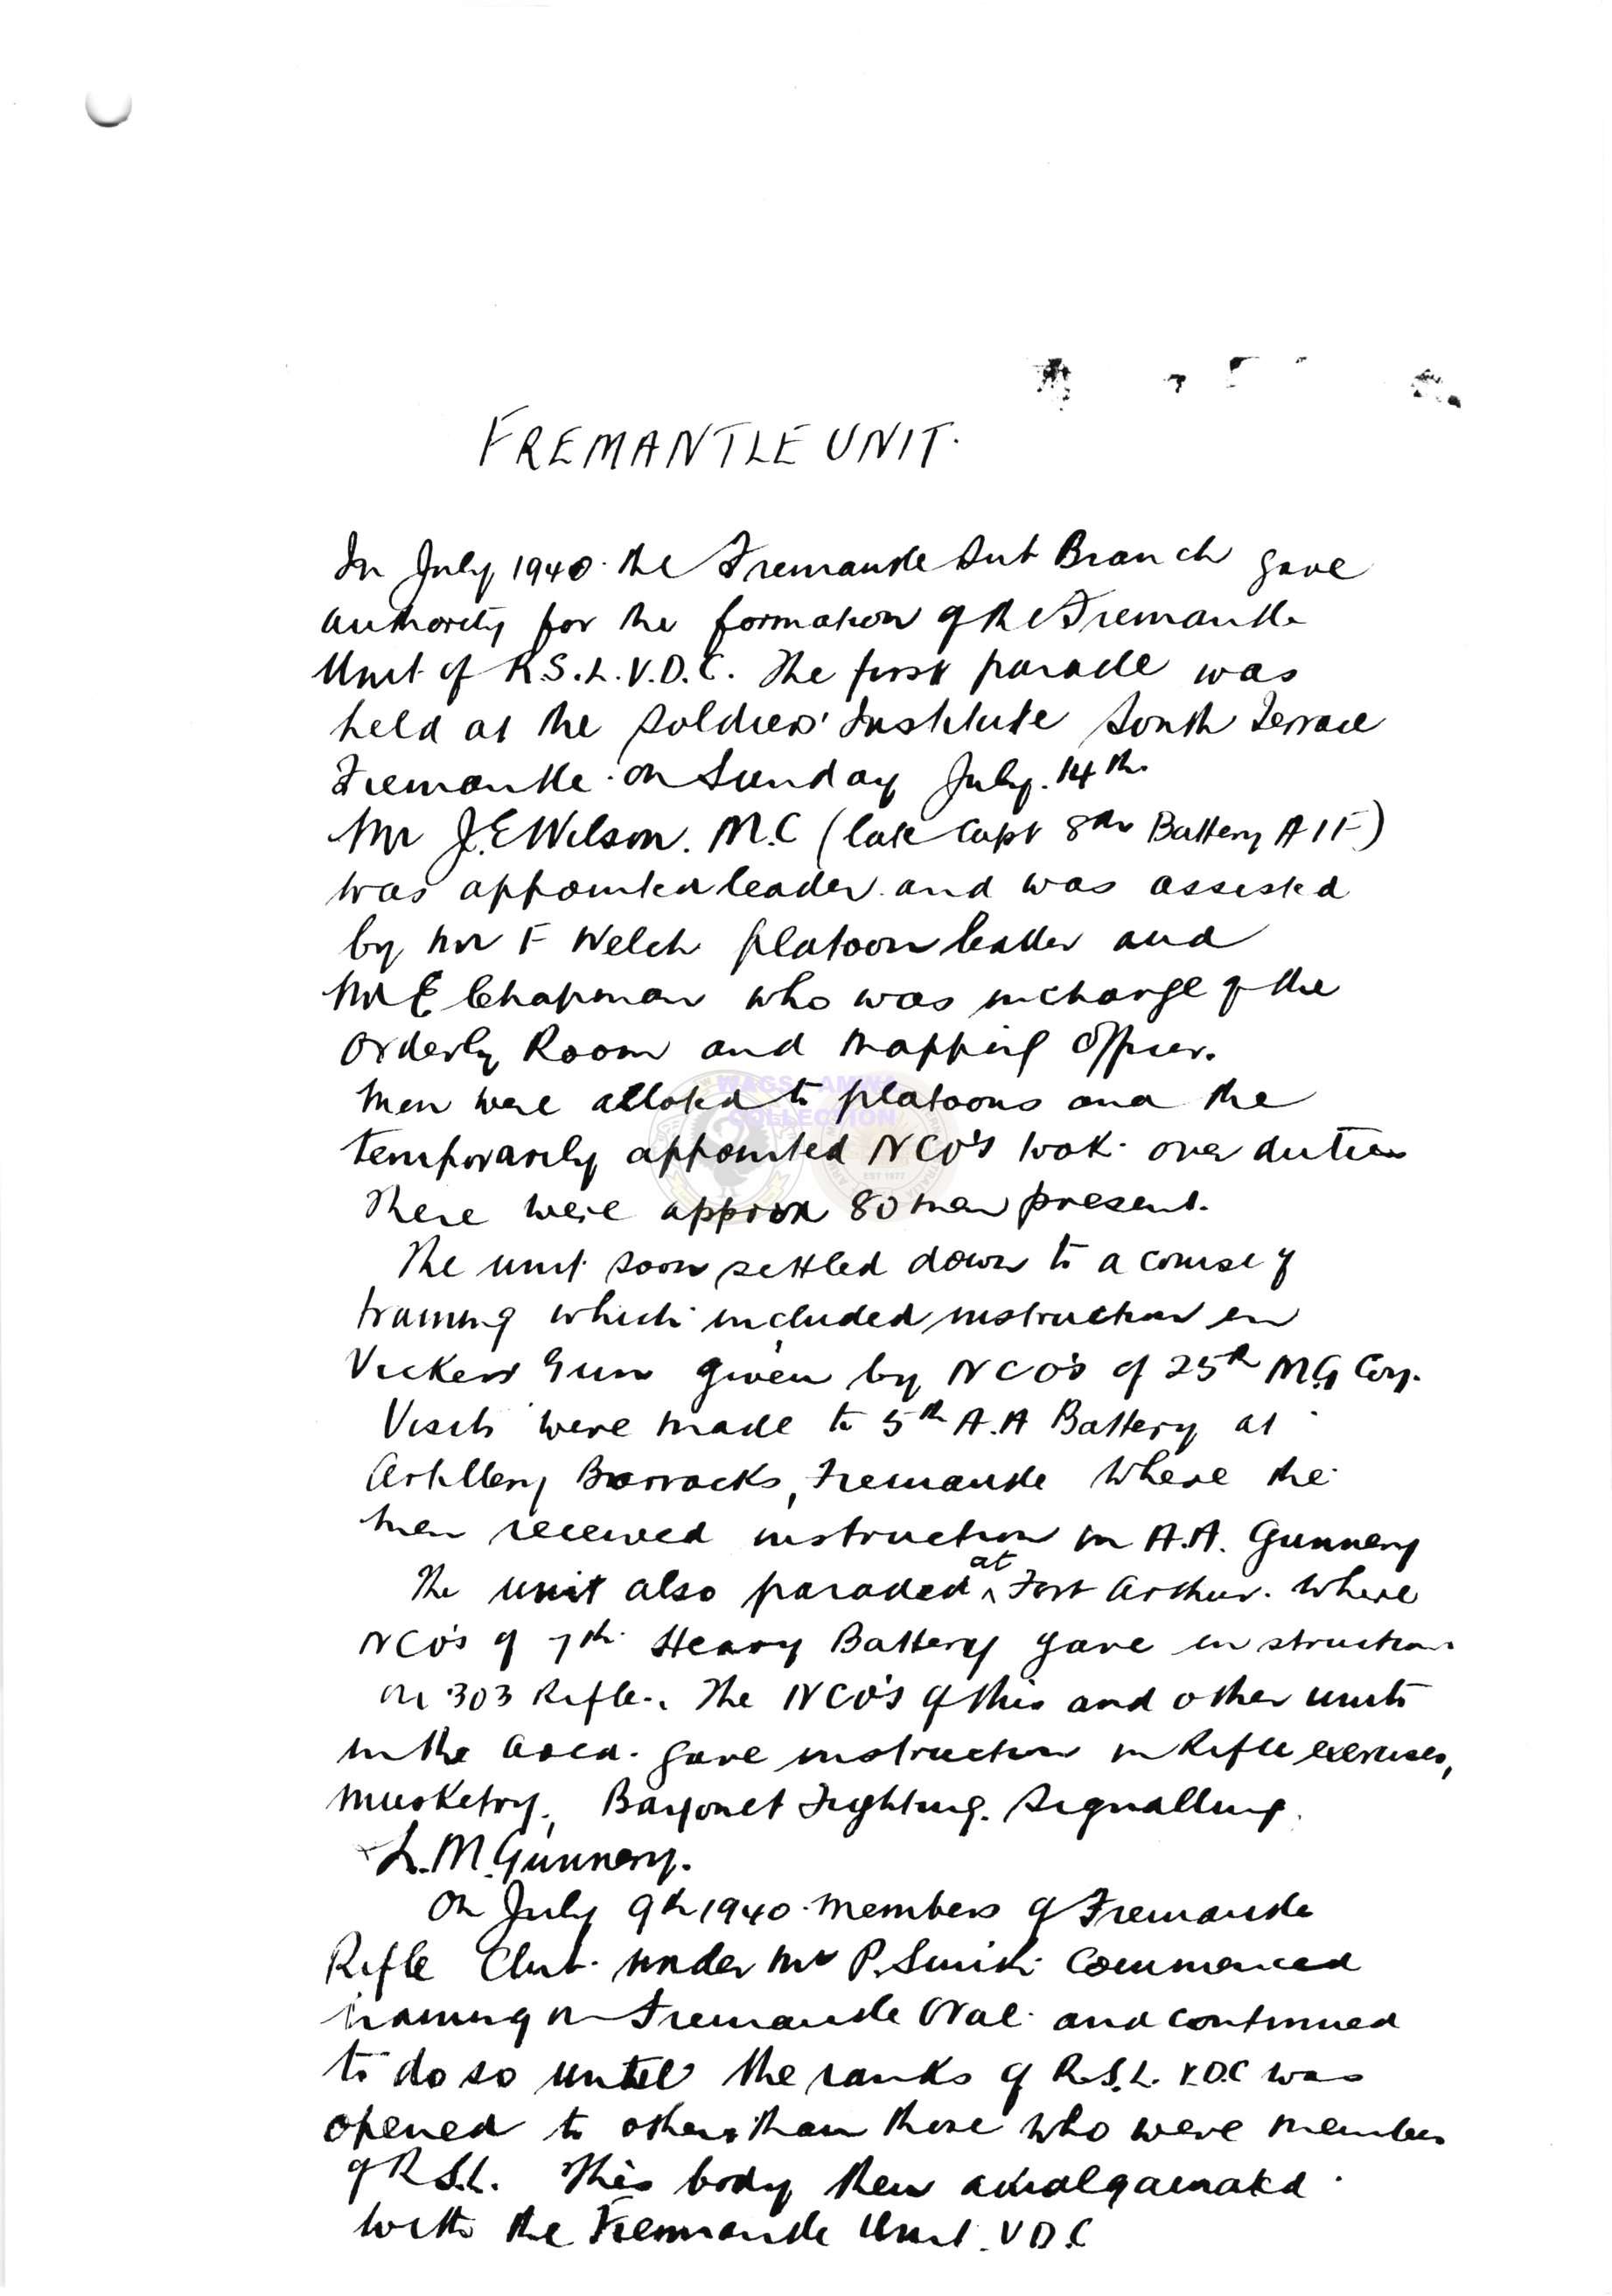 FREMANTLE UNIT.
In July 1940 the Fremantle Sub Branch gave
authority for the formation of the Fremantle
Unit of R.S.L.V.D.C. The first parade was
held at the Soldiers' Institute South Terrace
Fremantle on Sunday July 14th.
Mr J.E Wilson. M.C (late Capt 8th Battery AIF)
was appointed leader and was assisted
by Mr F Welch platoon leader and
Mr E Chapman who was in charge of the
Orderly Room and Mapping Officer.
Men were alloted to platoons and the
temporarily appointed NCO's took over duties
There were approx 80 men present.
The unit soon settled down to a course of
training which included instruction in
Vickers Gun given by NCO's of 25th M.G Coy.
Visits were made to 5th A.A Battery at
Artillery Barracks, Fremantle where the
men received instruction in A.A. Gunnery
The unit also paraded at Fort Arthur. where
NCO's of 7th Heavy Battery gave instruction
on 303 Rifle. The NCO's of this and other units
in the area. gave instruction in Rifle exercises,
Musketry, Bayonet Fighting. Signalling.
L.M.Gunnery.
On July 9th 1940 members of Fremantle
Rifle Club under Mr P. Smith commenced
training on Fremantle Oval and continued
to do so until the ranks of R.S.L. V.D.C was
opened to others than those who were members
of R.S.L. This body then amalgamated
with the Fremantle Unit. V D.C
WAGS AMWA
COLLECTION
EST 1977